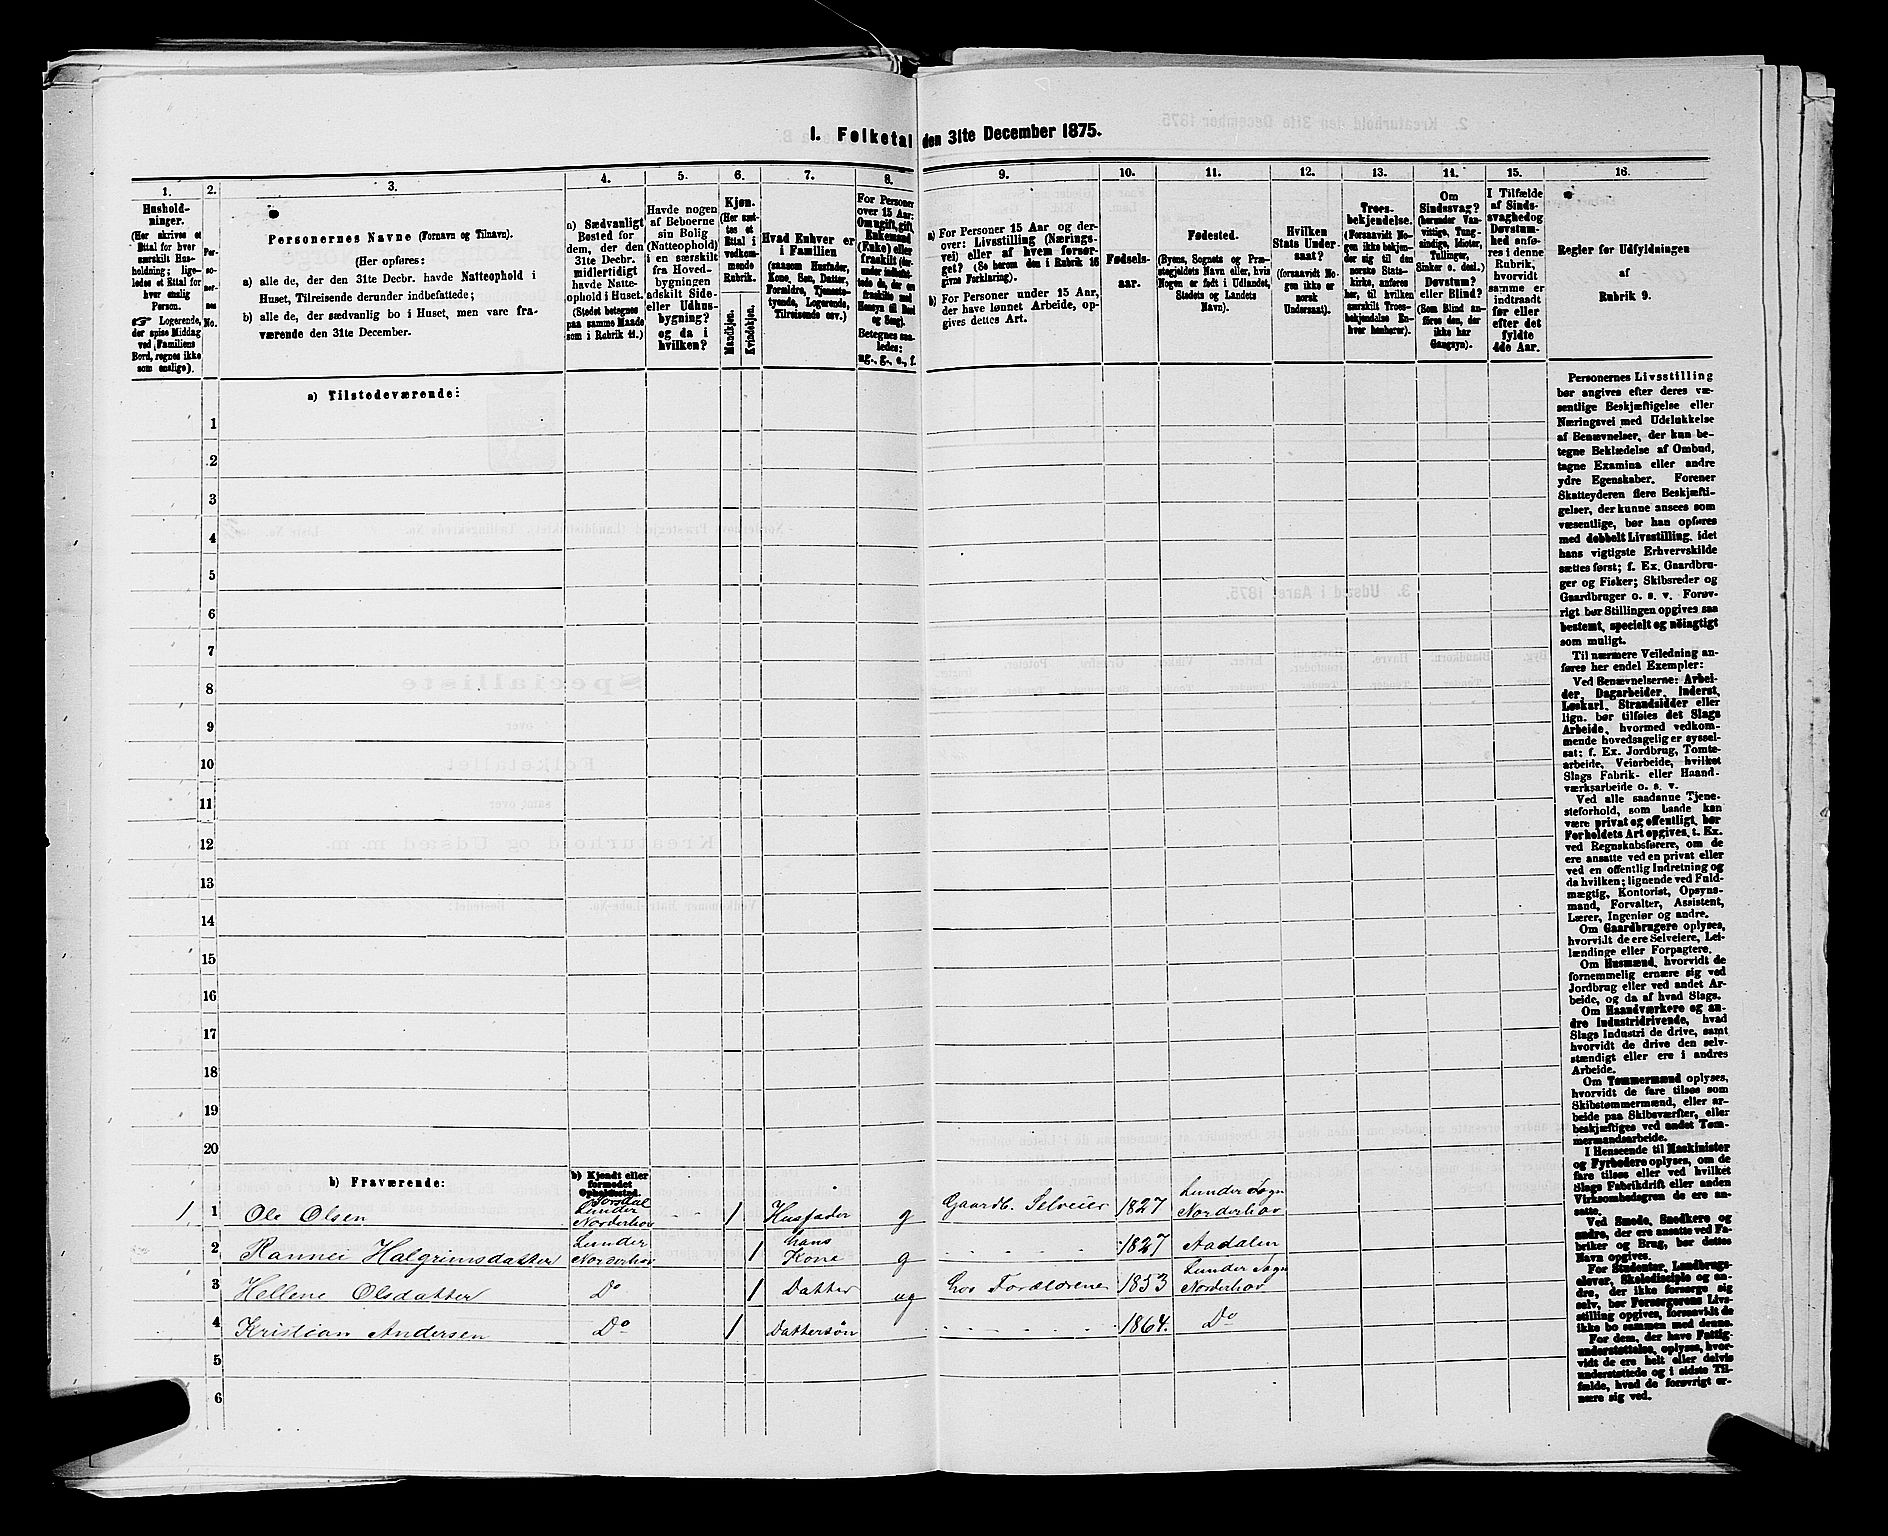 I. Folketal den 31te December 1875.
1.
2.
3.
4.
5.
6.
7.
8.
9.
10.
11.
12.
13.
14.
15.
16.
Hushold-
ninger.
(Her skrives et
Ettal for hver
særskilt Hus-
holdning; lige-
ledes et Ettal for
hver enslig
Person.
☞ Logerende,
der spise Middag
ved Familiens
Bord, regnes ikke
som enslige).
Per-
so-
ner-
nes
No.
Personernes Navne (Fornavn og Tilnavn).
(Her opføres:
a) alle de, der den 31te Decbr. havde Natteophold i
Huset, Tilreisende derunder indbefattede;
b) alle de, der sædvanlig bo i Huset, men vare fra-
værende den 31te December.
a) Sædvanligt
Bosted for
dem, der den
31te Decbr.
midlertidigt
havde Natte-
ophold i Huset.
(Stedet betegnes
paa samme Maade
som i Rubrik 11.)
Havde nogen
af Beboerne
sin Bolig
(Natteophold)
i en særskilt
fra Hoved-
bygningen
adskilt Side-
eller Udhus-
bygning?
og da i
hvilken?
Kjøn.
(Her sæt-
tes et
Ettal i
vedkom-
mende
Rubrik.
Mandkjøn.
Kvindekjøn.
Hvad Enhver er
i Familien
(saasom Husfader,
Kone, Søn, Datter,
Forældre, Tjeneste-
tyende, Logerende,
Tilreisende osv.)
For Personer
over 15 Aar:
Om ugift, gift,
Enkemand
(Enke) eller
fraskilt (her-
under indbefat-
tede de, der ere
fraskilte med
Hensyn til Bord
og Seng).
Betegnes saa-
ledes:
ug., g., e., f.
a) For Personer 15 Aar og der-
over: Livsstilling (Nærings-
vei) eller af hvem forsør-
get? (Se herom den i Rubrik 16
givne Forklaring).
b) For Personer under 15 Aar,
der have lønnet Arbeide, op-
gives dettes Art.
Fødsels-
aar.
Fødested.
(Byens, Sognets og Præ-
stegjeldets Navn eller, hvis
Nogen er født i Udlandet,
Stedets og Landets
Navn).
Hvilken
Stats Under-
saat?
(forsaavidt No-
gen ikke er
norsk
Undersaat).
Troes-
bekjendelse.
(Forsaavidt No-
gen ikke bekjen-
der sig til den
norske Stats-
kirke, anføres
her, til hvilken
særskilt Troes-
bekjendelse En-
hver henhører).
Om
Sindssvag?
(herunder Van-
vittige, Tung-
sindige, Idioter,
Tullinger,
Sinker o. desl.)
Døvstum?
eller Blind?
(Som Blind an-
føres den, der
ikke har
Gangsyn).
I Tilfælde
af Sinds-
svaghed og
Døvstum-
hed anfø-
res i denne
Rubrik,
hvorvidt
samme er
indtraadt
før eller
efter det
fyldte
4de Aar.
Regler for Udfyldningen
af
Rubrik 9.
a) Tilstedeværende:
1
2
3
4
5
6
7
8
9
10
11
12
13
14
15
16
17
18
19
20
Personernes Livsstilling
bør angives efter deres væ-
sentlige Beskjæftigelse eller
Næringsvei med Udelukkelse
af Benævnelser, der kun be-
tegne Beklædelse af Ombud,
tagne Examina eller andre
ydre Egenskaber. Forener
Skatteyderen flere Beskjæfti-
gelser, der kunne ansees som
væsentlige, bør han opføres
med dobbelt Livsstilling, idet
hans vigtigste Erhvervskilde
sættes først; f. Ex. Gaardbru-
ger og Fisker; Skibsreder og
Gaardbruger o. s. v. Forøv-
rigt bør Stillingen opgives saa
bestemt, specielt og nøiagtigt
som muligt.
Til nærmere Veiledning an-
føres her endel Exempler:
Ved Benævnelserne: Arbei-
der, Dagarbeider, Inderst,
Løskarl, Strandsidder eller
lign. bør tilføies det Slags
Arbeide, hvormed vedkom-
mende hovedsagelig er syssel-
sat; f. Ex. Jordbrug, Tomte-
arbeide, Veiarbeide, hvilket
Slags Fabrik- eller Haand-
værksarbeide o. s. v.
Ved alle saadanne Tjene-
steforhold, som baade kan
være privat og offentligt, bør
Forholdets Art opgives, t. Ex.
ved Regnskabsførere, om de
ere ansatte ved en privat eller
ved en offentlig Indretning og
da hvilken; lignende ved Fuld-
mægtig, Kontorist, Opsyns-
mand, Forvalter, Assistent,
Lærer, Ingeniør og andre.
Om Gaardbrugere oplyses,
hvorvidt de ere Selveiere, Lei-
lændinge eller Forpagtere.
Om Husmænd, hvorvidt de
fornemmelig ernære sig ved
Jordbrug eller ved andet Ar-
beide, og da af hvad Slags.
Om Haandværkere og an-
dre Industridrivende, hvad
Slags Industri de drive, samt
hvorvidt de drive den selv-
stændigt eller ere i andres
Arbeide.
Om Tømmermænd oplyses,
hvorvidt de fare tilsøs som
Skibstømmermænd, eller ar-
beide paa Skibsværfter, eller
beskjæftiges ved andet Tøm-
mermandsarbeide.
I Henseende til Maskinister
og Fyrbødere oplyses, om de
fare tilsøs eller ved hvilket
Slags Fabrikdrift eller anden
Virksomhedsgren de ere an-
satte.
Ved Smede, Snedkere og
andre, der ere ansatte ved Fa-
briker og Brug, bør dettes
Navn opgives.
For Studenter, Landbrugs-
elever, Skoledisciple og an-
dre, der ikke forsørge sig
selv, bør Forsørgerens Livs-
stilling opgives, forsaavidt de
ikke bo sammen med denne.
For dem, der have Fattig-
understøttelse, oplyses, hvor-
vidt de ere helt eller delvis
understøttede og i sidste Til-
fælde, hvad de forøvrigt er-
nære sig ved.
b) Fraværende:
b) Kjendt eller
formodet
Opholdssted.
1 1 Ole Olsen Sorsdal Lunder Norderhov 1 Husfader g Gaardb. Selveier 1827 Lunder Sogn Norderhov
2 Rannei Halgrimsdatter Lunder Norderhov 1 hans Kone g 1827 Aadalen
3 Hellene Olsdatter Do 1 Datter ug hos Forældrene 1853 Lunder Sogn Norderhov
4 Kristian Andersen Do 1 Dattersøn 1864. Do
5
6